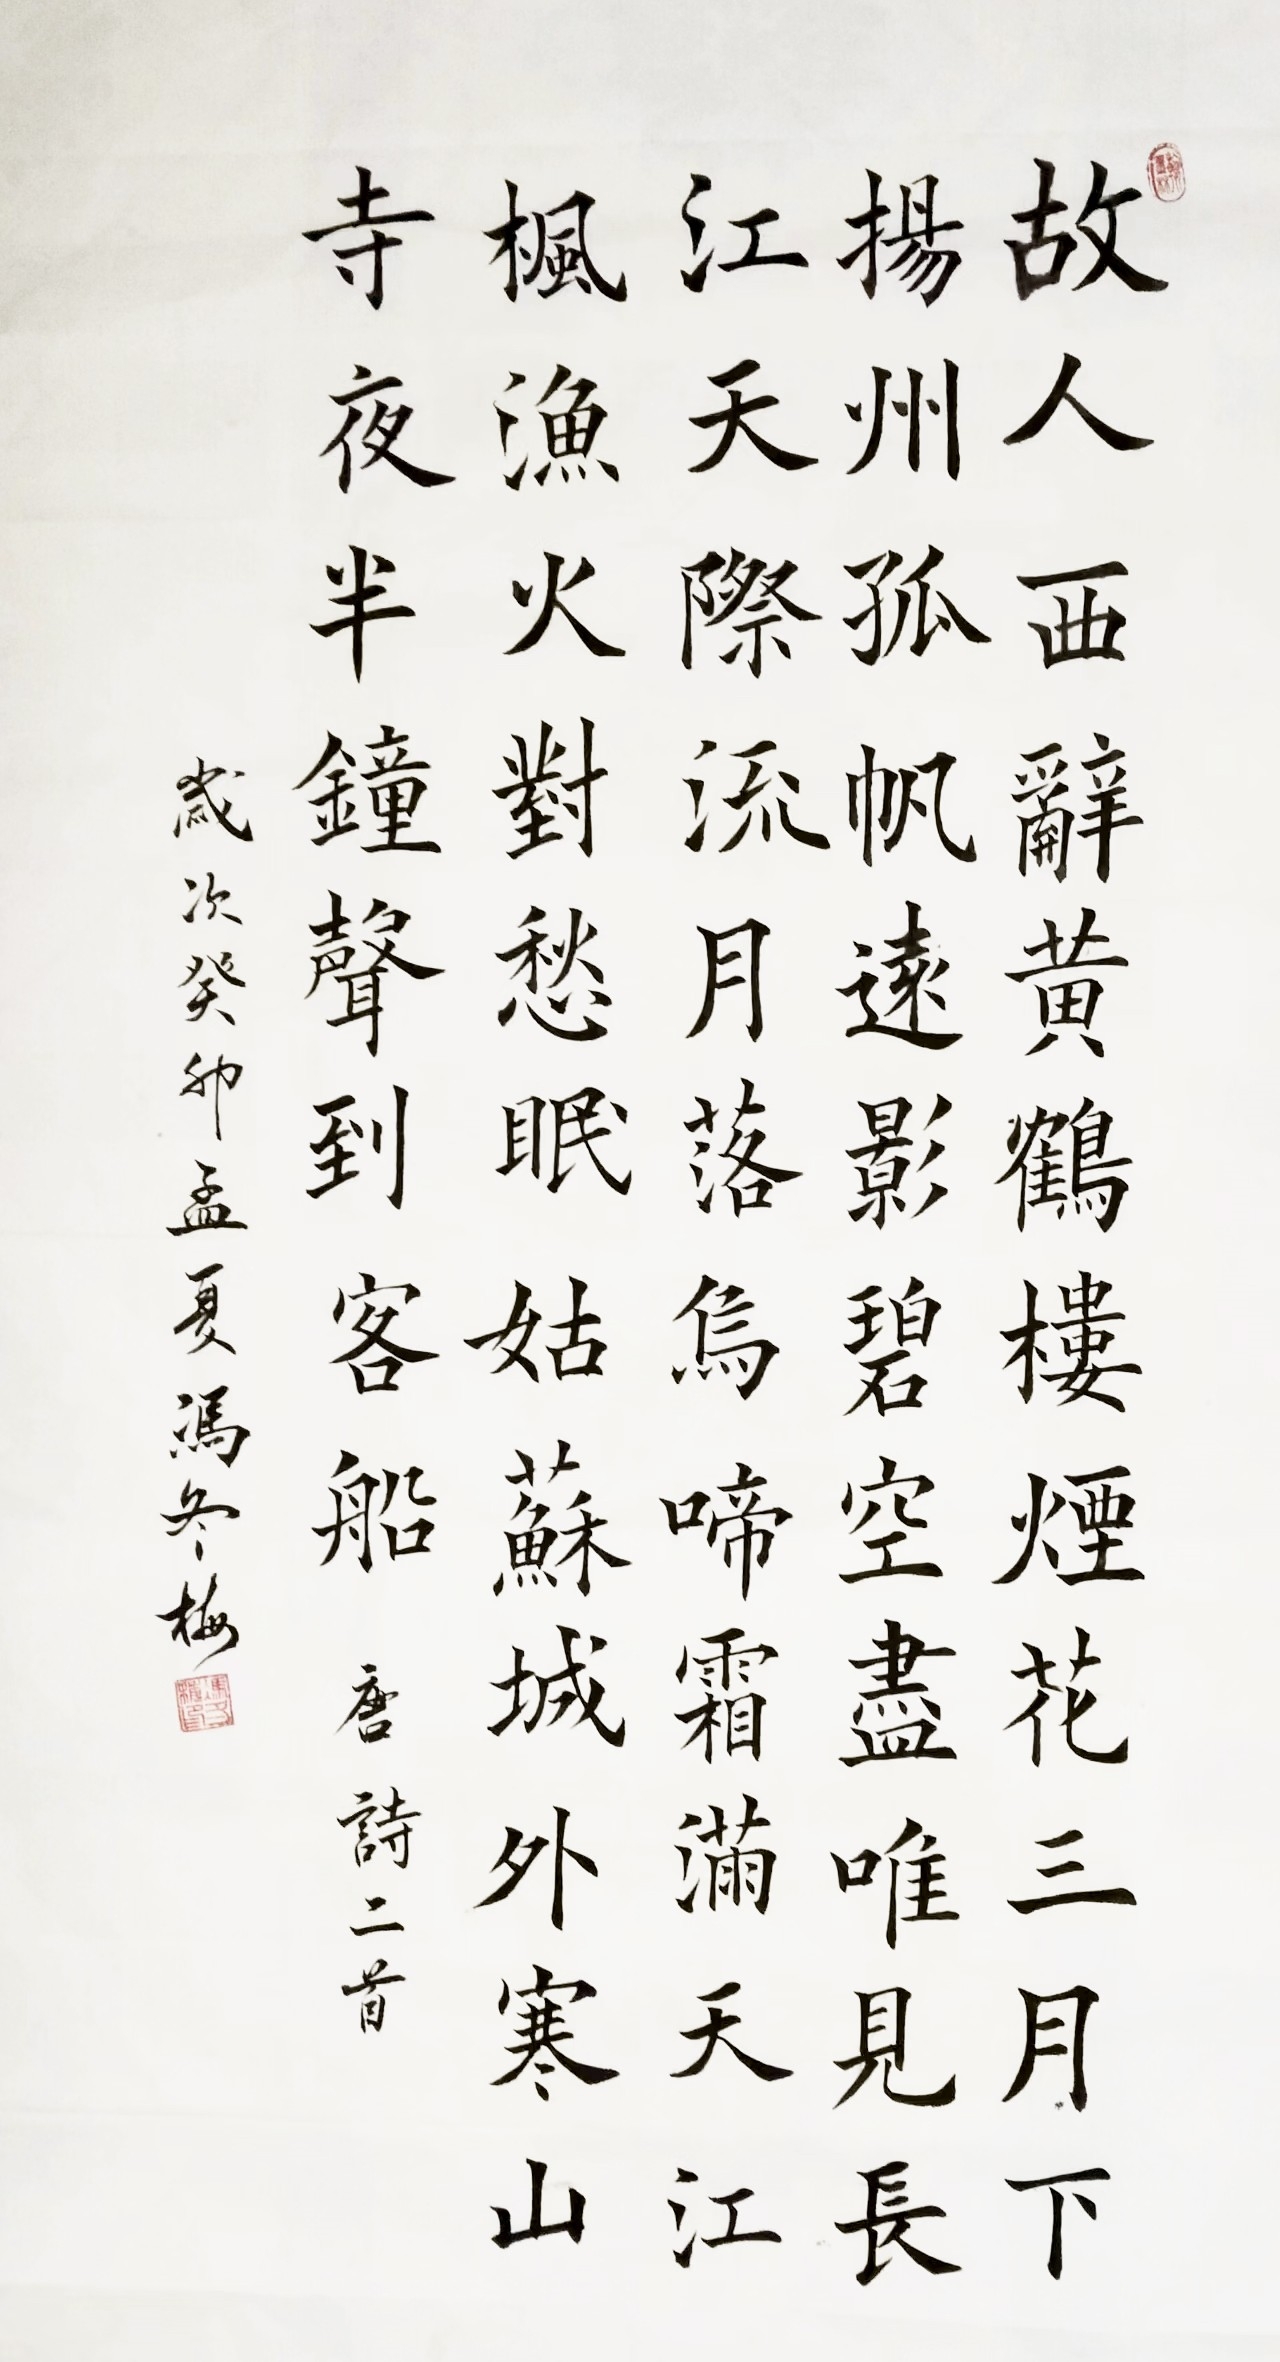 故人西辭黄鶴樓煙花三月下
揚州孤帆遠影碧空盡唯見長
江天際流月落烏啼霜滿天江
楓漁火對愁眠姑蘇城外寒山
寺夜半鐘聲到客船 唐詩二首
歲次癸卯孟夏馮冬梅